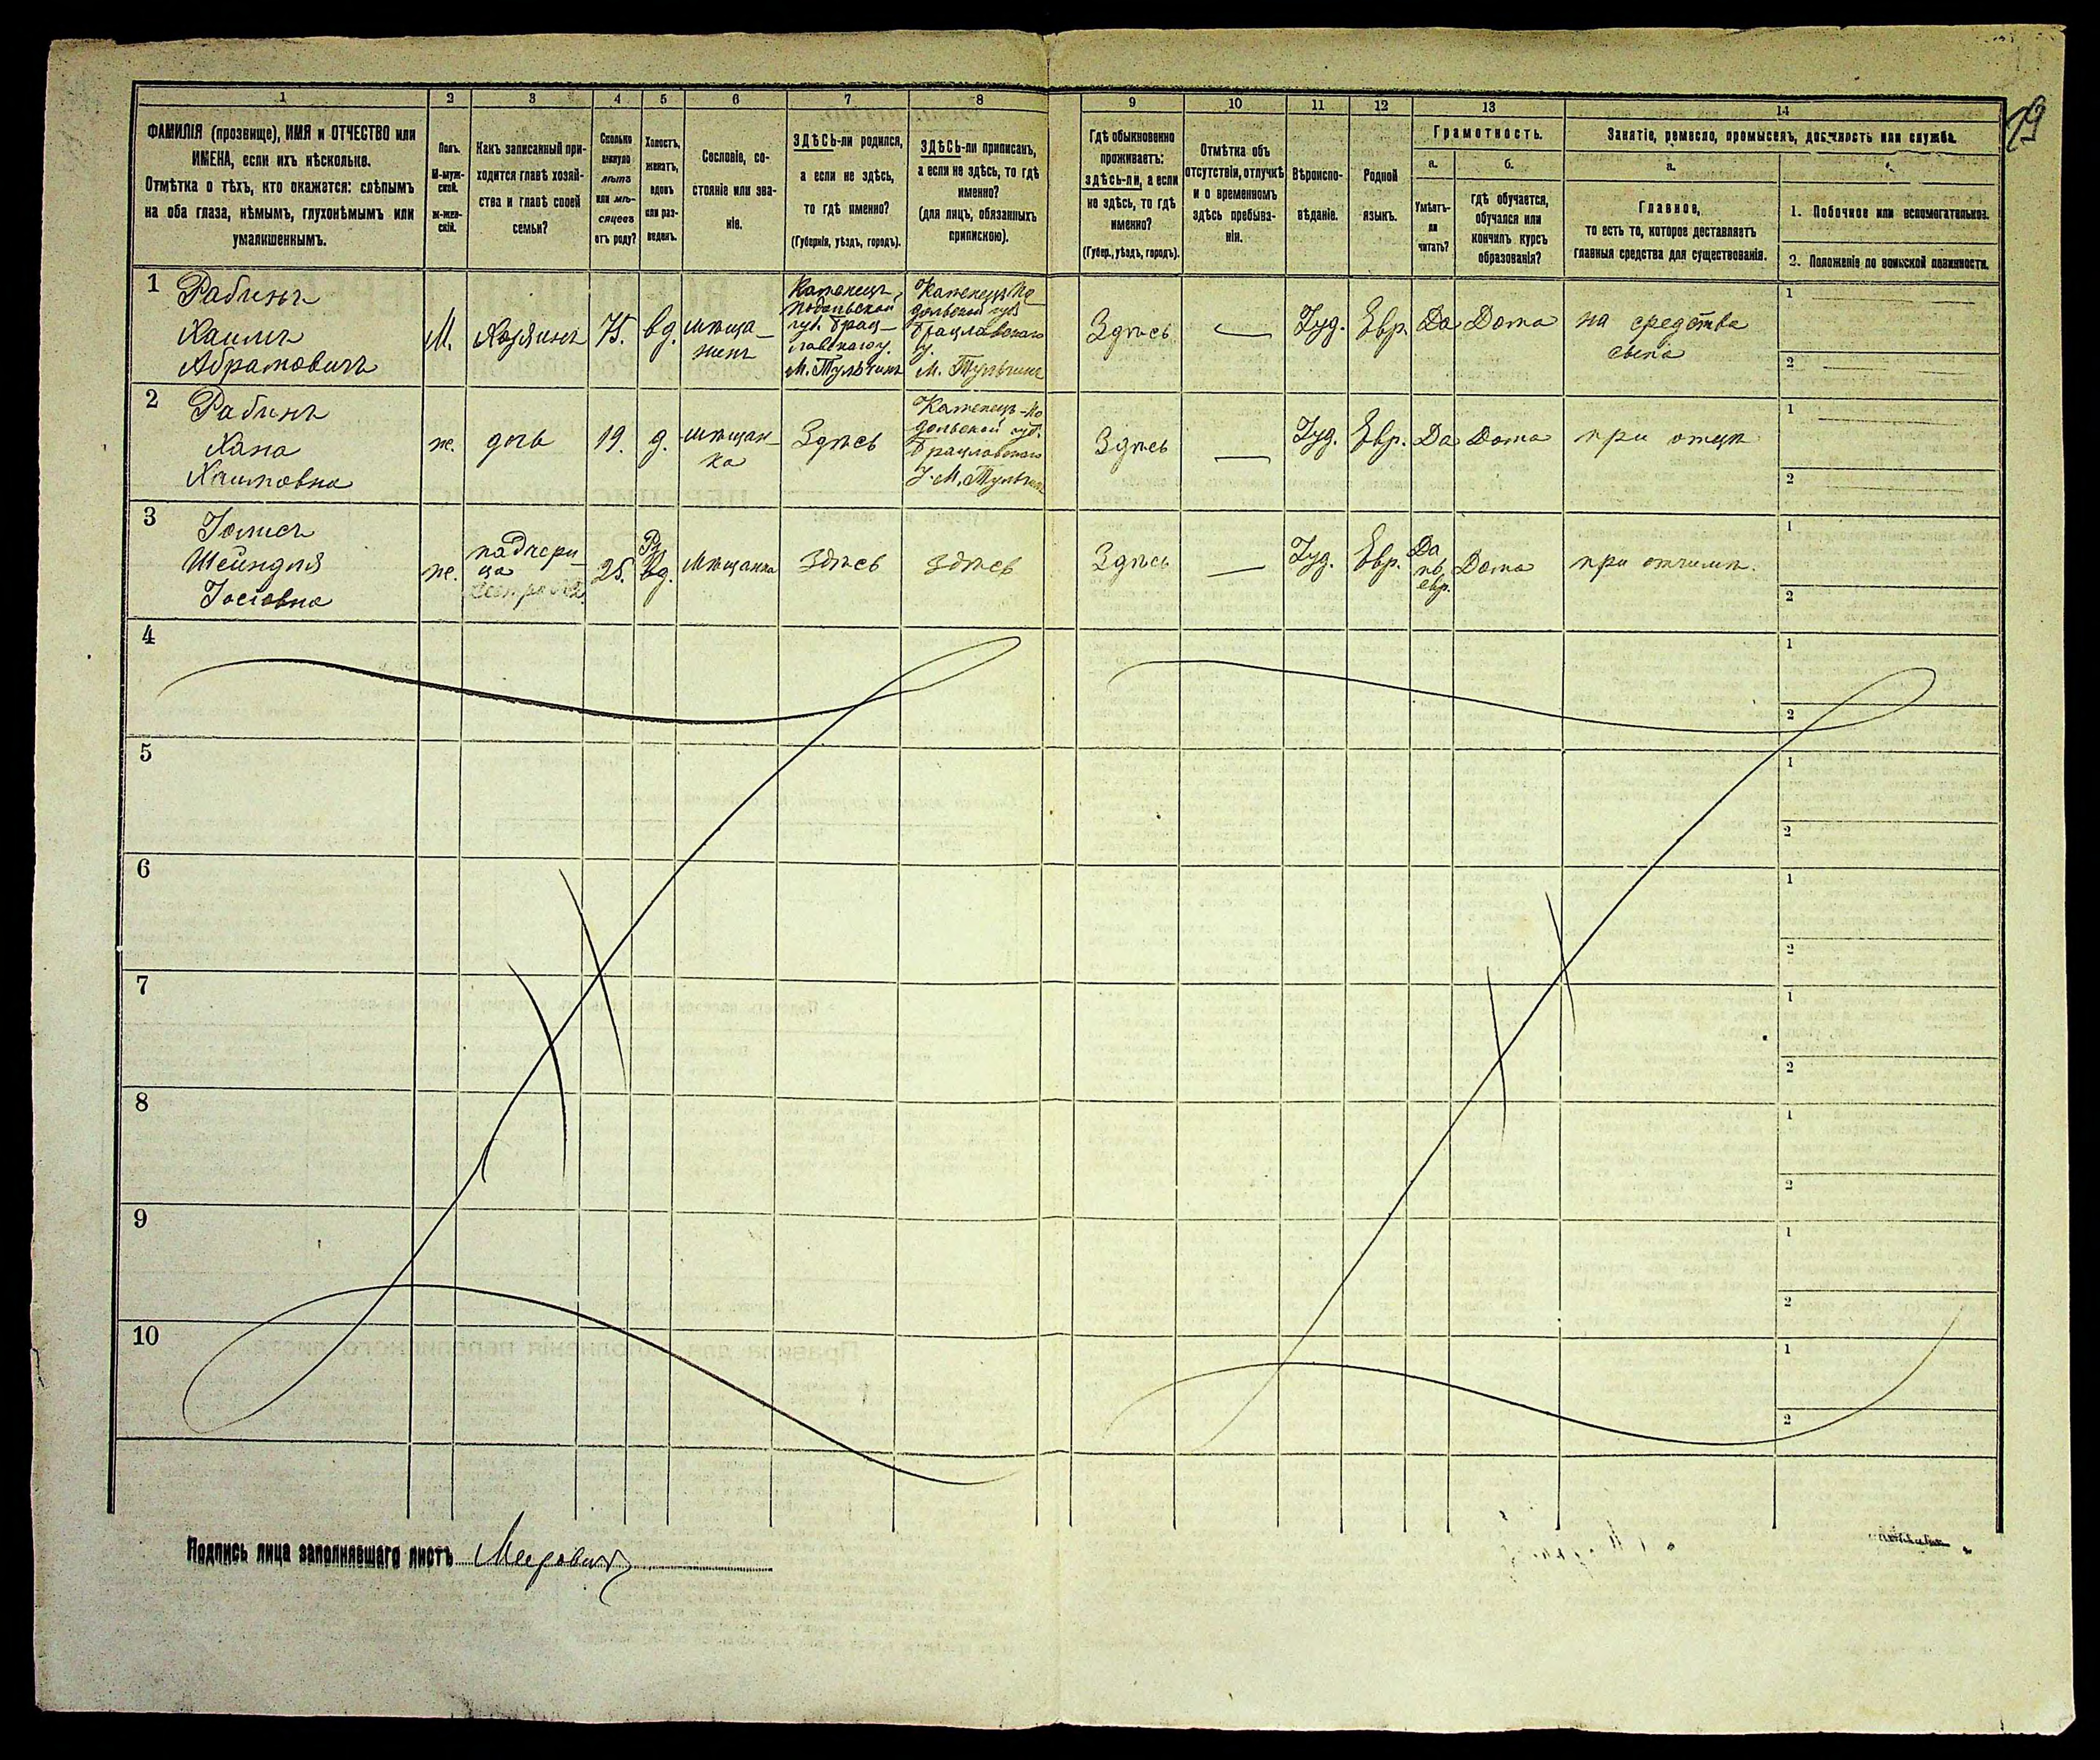 19
1 2 3 4 5 6 7 8 9 10 11 12 13 14
ФАМИЛІЯ (прозвище), ИМЯ и ОТЧЕСТВО или
ИМЕНА, если ихъ нѣсколько.
Отмѣтка о тѣхъ, кто окажется: слѣпымъ
на оба глаза, нѣмымъ, глухонѣмымъ или
умалишеннымъ.
Полъ.
М-муж-
ской.
ж-жен-
скій.
Какъ записанный при-
ходится главѣ хозяй-
ства и главѣ своей
семьи?
Сколько
минуло
лѣтъ
или мѣ-
сяцевъ
отъ роду?
Холостъ,
женатъ,
вдовъ
или раз-
веденъ.
Сословіе, со-
стояніе или зва-
ніе.
ЗДѢСЬ-ли родился,
а если не здѣсь,
то гдѣ именно?
(Губернія, уѣздъ, городъ).
ЗДѢСЬ-ли приписанъ,
а если не здѣсь, то гдѣ
именно?
(для лицъ, обязанныхъ
припискою).
Гдѣ обыкновенно
проживаетъ:
здѣсь-ли, а если
не здѣсь, то гдѣ
именно?
(Губер., уѣздъ, городъ).
Отмѣтка объ
отсутствіи, отлучкѣ
и о временномъ
здѣсь пребыва-
ніи.
Вѣроиспо-
вѣданіе.
Родной
языкъ.
Грамотность.
а.
Умѣетъ-
ли
читать?
б.
гдѣ обучается,
обучался или
кончилъ курсъ
образованія?
Занятіе, ремесло, промыселъ, должность или служба.
а.
Главное,
то есть то, которое доставляетъ
главныя средства для существованія.
1. Побочное или вспомогательное.
2. Положеніе по воинской повинности.
1
Рабинъ
Хаимъ
Абрамовичъ
М.
Хозяинъ
75.
вд.
мѣща-
нинъ
Каменецъ-
Подольской
губ. Брац-
лавскаго у.
М. Тульчинъ
Каменецъ По-
дольской губ.
Брацлавскаго
у.
М. Тульчинъ
Здѣсь
—
Іуд.
Евр.
Да
Дома
на средства
сына
1
2
2
Рабинъ
Хана
Хаимовна
ж.
дочь
19.
д.
мѣщан-
ка
Здѣсь
Каменецъ-По
дольской губ.
Брацлавскаго
У. М. Тульчинъ
Здѣсь
—
Іуд.
Евр.
Да
Дома
при отцѣ
1
2
3
Шейндля
Іосіовна
ж.
падчери-
ца
25.
вд.
Мѣщанка
здѣсь
здѣсь
Здѣсь
—
Іуд.
Евр.
Да
по
евр.
Дома
при отчимѣ.
1
2
4
1
2
5
1
2
6
1
2
7
1
2
8
1
2
9
1
2
10
1
2
Подпись лица заполнявшаго листъ Меерович